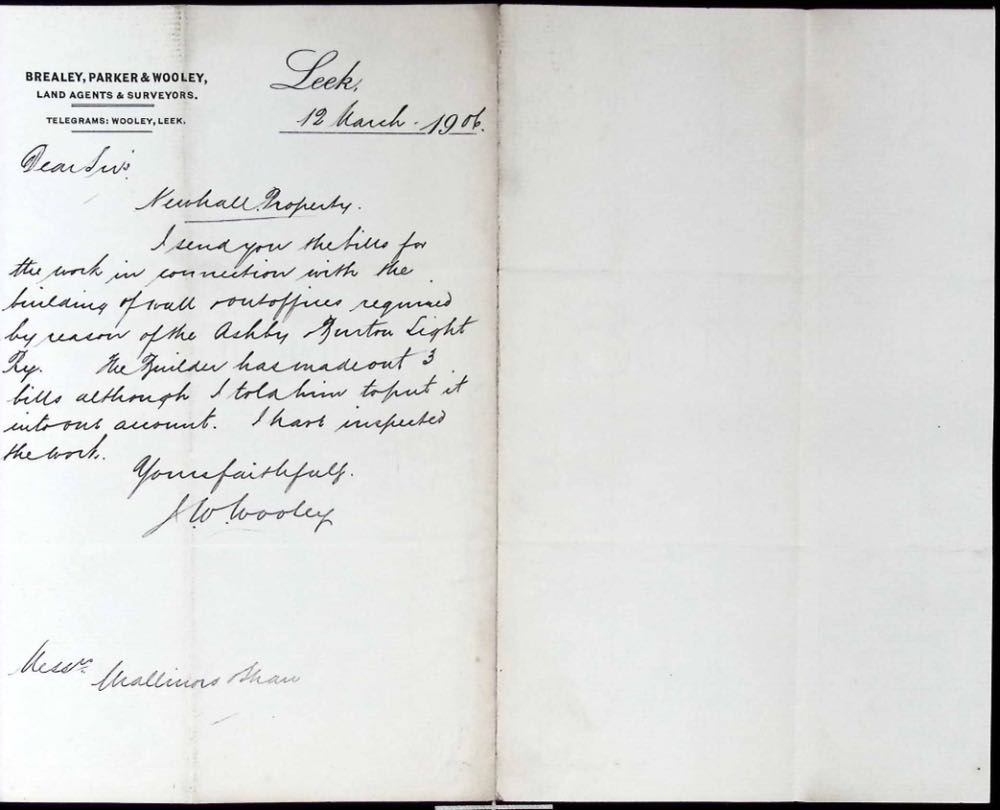 BREALEY, PARKER & WOOLEY,
LAND AGENTS & SURVEYORS.
TELEGRAMS: WOOLEY, LEEK.
Leek,
12 March. 1906.
Dear Sirs
Newhall Property.
I send you the bills for
the work in connection with the
building of wall & outoffices required
by reason of the Ashby & Burton Light
Ry. The Builder has made out 3
bills although I told him to put it
into one account. I have inspected
the work.
Yours faithfully.
J W Wooley
Messrs
Challinors & Shaw